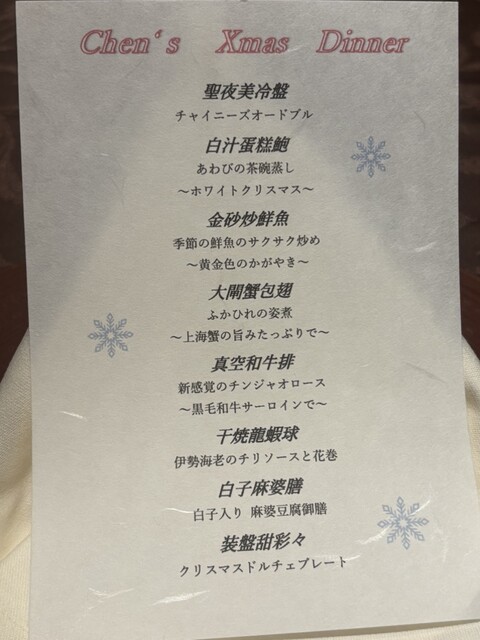 Chen's Xmas Dinner
聖夜美冷盤
チャイニーズオードブル
白汁蛋糕鮑
あわびの茶碗蒸し
～ホワイトクリスマス～
金砂炒鮮魚
季節の鮮魚のサクサク炒め
～黄金色のかがやき～
大閘蟹包翅
ふかひれの姿煮
～上海蟹の旨みたっぷりで～
真空和牛排
新感覚のチンジャオロース
～黒毛和牛サーロインで～
干焼龍蝦球
伊勢海老のチリソースと花巻
白子麻婆膳
白子入り 麻婆豆腐御膳
装盤甜彩々
クリスマスドルチェプレート